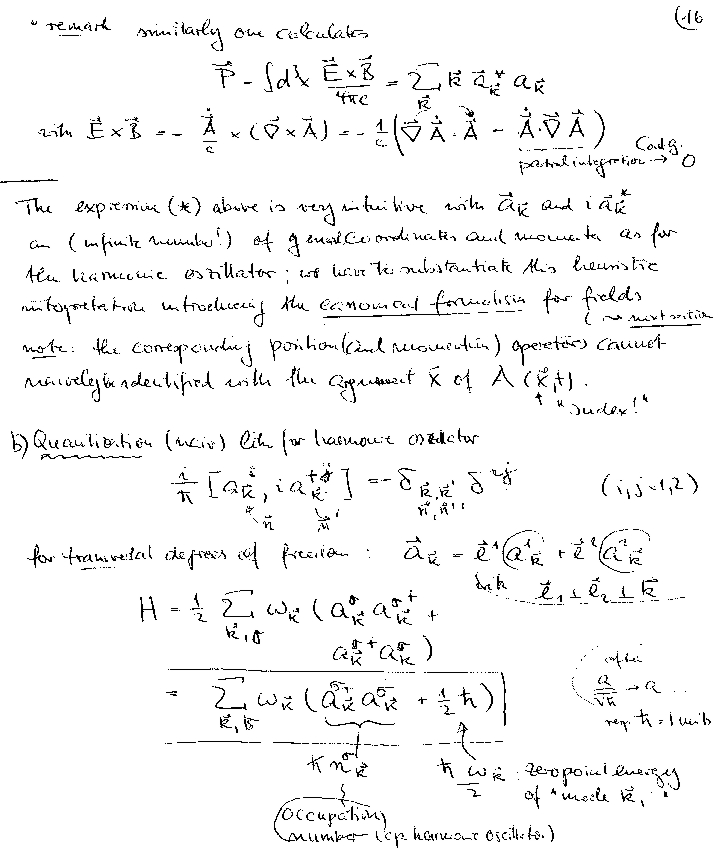 (16
" remark similarly one calculates
P⃗ = ∫d³x (E⃗×B⃗)/(4πc) = Σ_k⃗ k⃗ a⃗*_k⃗ a_k⃗
with E⃗×B⃗ = - (Ȧ⃗/c) × (∇⃗×A⃗) = - (1/c) (∇⃗ Ȧ⃗·A⃗ - Ȧ⃗·∇⃗ A⃗)
partial integration → 0
The expression (*) above is very intuitive with a⃗_k⃗ and i a⃗*_k⃗
an (infinite number!) of general coordinates and momenta as for
the harmonic oscillator; we have to substantiate this heuristic
interpretation introducing the canonical formalism for fields
(→ next section
note: the corresponding position (and momentum) operators cannot
naively be identified with the argument x⃗ of A (x⃗,t).
↑ "Index!"
b) Quantization (naiv) like for harmonic oscillator
i/ħ [a^i_k⃗, i a^{+j}_k⃗'] = - δ_{k⃗,k⃗'} δ^{ij} (i,j=1,2)
n⃗ n⃗' n⃗,n⃗'
for transversal degrees of freedom: a⃗_k⃗ = e⃗¹ a¹_k⃗ + e⃗² a²_k⃗
with e⃗₁ ⊥ e⃗₂ ⊥ k⃗
H = ½ Σ_{k⃗,σ} ω_k⃗ (a^σ_k⃗ a^{σ+}_k⃗ +
a^{σ+}_k⃗ a^σ_k⃗)
= Σ_{k⃗,σ} ω_k⃗ (a^{σ+}_k⃗ a^σ_k⃗ + ½ ħ)
often
a/√ħ → a ...
resp. ħ = 1 units
ħ n^σ_k⃗
ħ ω_k⃗/2 : zeropoint energy
of "mode k⃗, "
occupation
number (cp. harmonic oscillator)